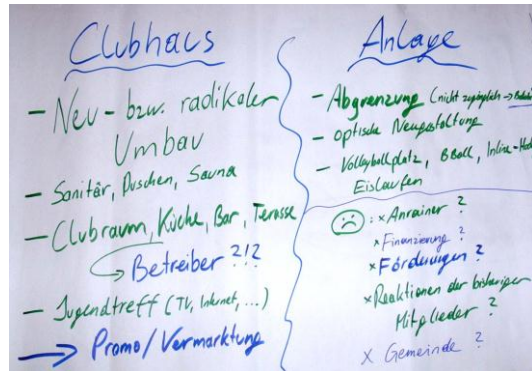 Clubhaus
– Neu- bzw. radikaler
Umbau
– Sanitär, Duschen, Sauna
– Clubraum, Küche, Bar, Terasse
→ Betreiber ?!?
– Jugendtreff (TV, Internet, ...)
→ Promo/Vermarktung
Anlage
– Abgrenzung (nicht zugänglich →
– optische Neugestaltung
– Volleyballplatz, BBall, Inline-
Eislaufen
☹ : x Anrainer ?
x Finanzierung ?
x Förderungen ?
x Reaktionen der bisherigen
Mitglieder ?
x Gemeinde ?